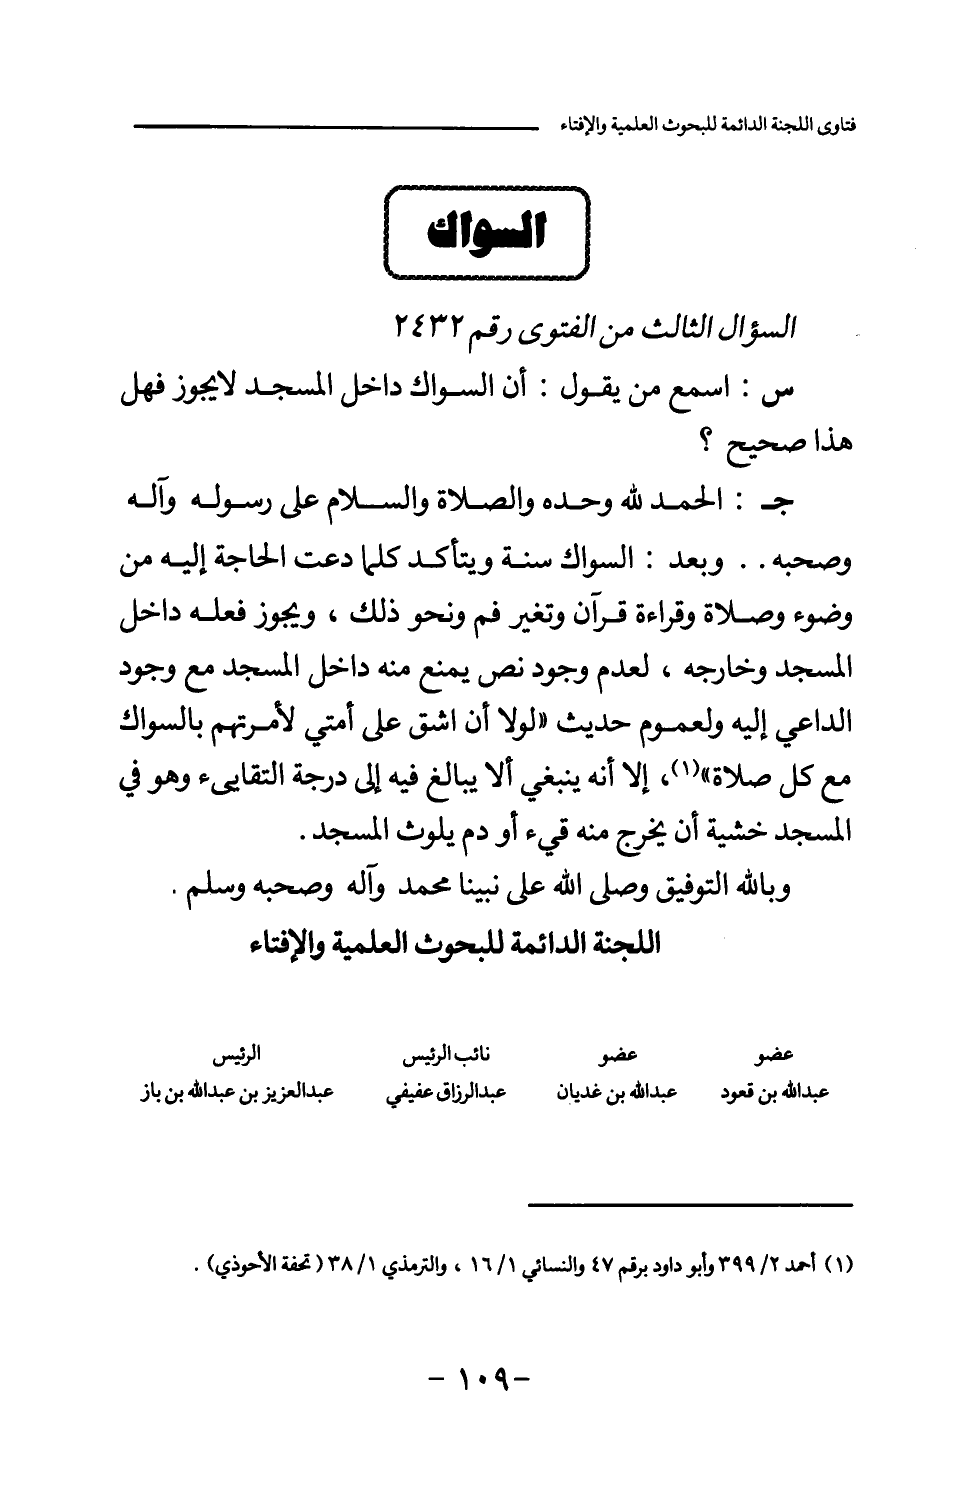 فتاوى اللجنة الدائمة للبحوث العلمية والإفتاء
السواك
السؤال الثالث من الفتوى رقم ٢٤٣٢
س : اسمع من يقول : أن السواك داخل المسجد لايجوز فهل
هذا صحيح ؟
جـ : الحمد لله وحده والصلاة والسلام على رسوله وآله
وصحبه . . وبعد : السواك سنة ويتأكد كلما دعت الحاجة إليه من
وضوء وصلاة وقراءة قرآن وتغير فم ونحو ذلك ، ويجوز فعله داخل
المسجد وخارجه ، لعدم وجود نص يمنع منه داخل المسجد مع وجود
الداعي إليه ولعموم حديث «لولا أن اشق على أمتي لأمرتهم بالسواك
مع كل صلاة»(١)، إلا أنه ينبغي ألا يبالغ فيه إلى درجة التقايىء وهو في
المسجد خشية أن يخرج منه قيء أو دم يلوث المسجد .
وبالله التوفيق وصلى الله على نبينا محمد وآله وصحبه وسلم .
اللجنة الدائمة للبحوث العلمية والإفتاء
عضو عضو نائب الرئيس الرئيس
عبدالله بن قعود عبدالله بن غديان عبدالرزاق عفيفي عبدالعزيز بن عبدالله بن باز
(١) أحمد ٢/ ٣٩٩ وأبو داود برقم ٤٧ والنسائي ١/ ١٦ ، والترمذي ١/ ٣٨ ( تحفة الأحوذي) .
- ١٠٩ -